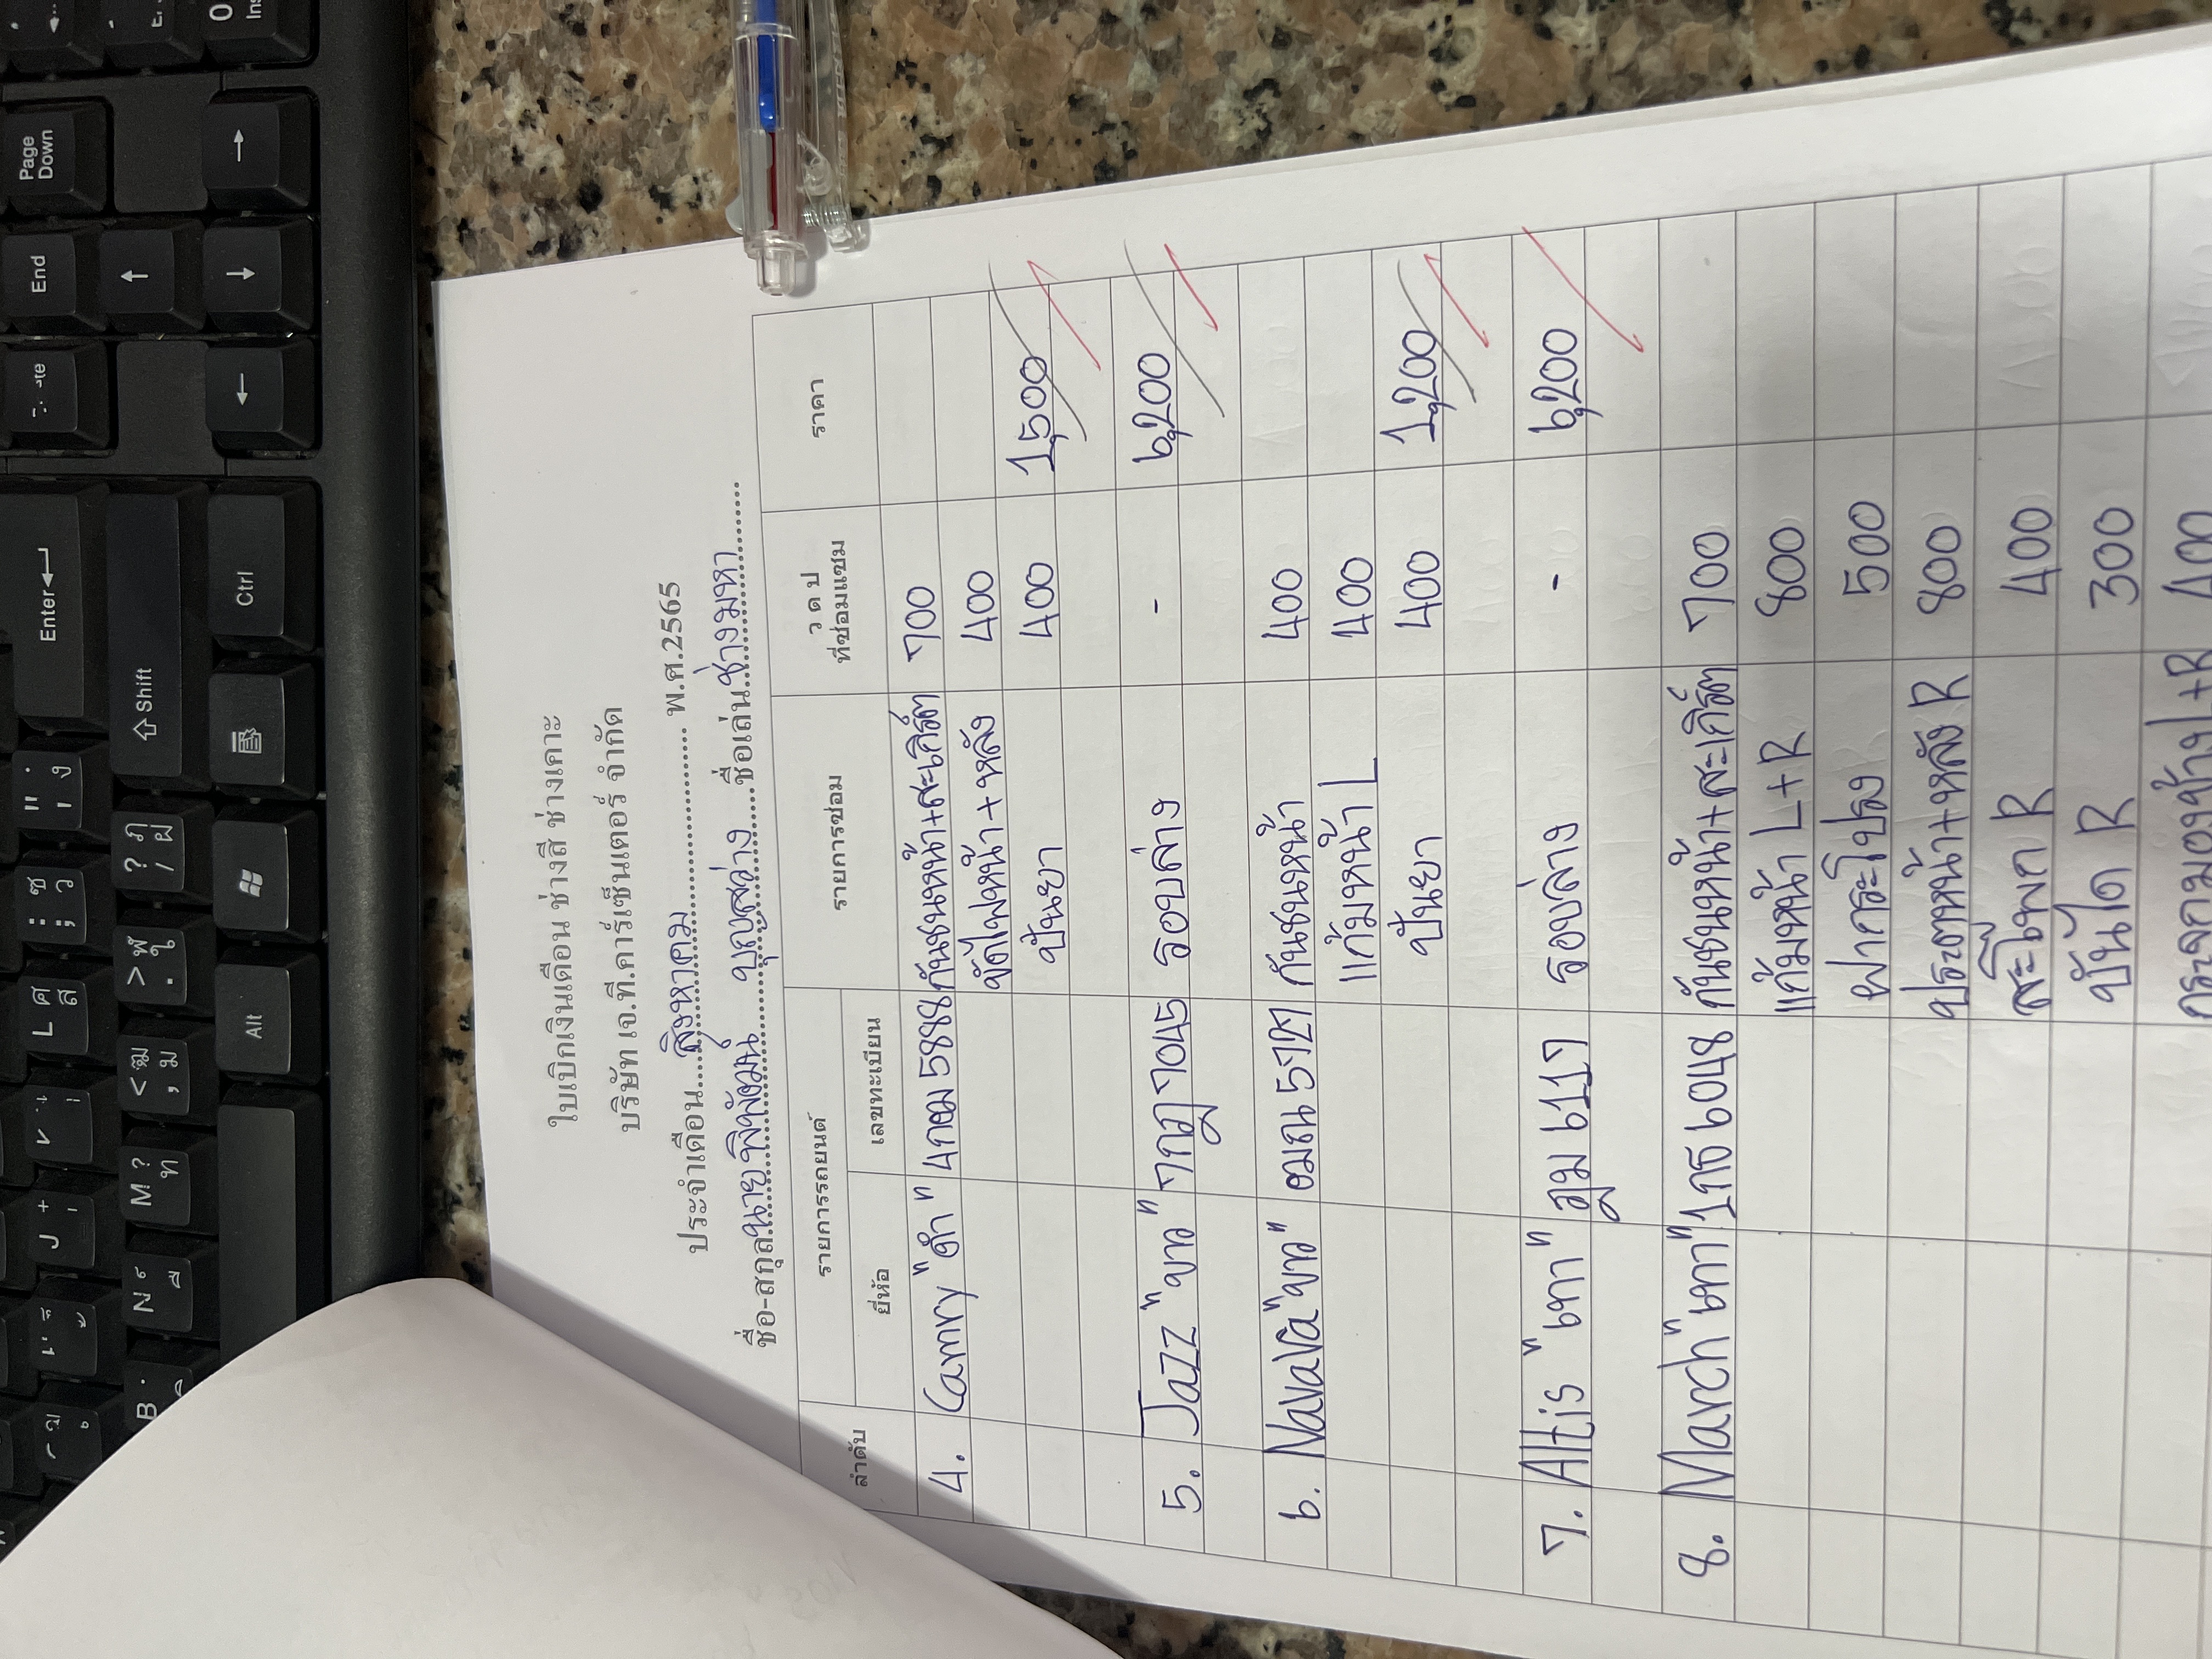 ใบเบิกเงินเดือน ช่างสี ช่างเคาะ
บริษัท เจ.ที.คาร์เซ็นเตอร์ จำกัด
ประจำเดือน....สิงหาคม.................... พ.ศ.2565
ชื่อ-สกุล.นายพิพัฒน์ บุญสว่าง....ชื่อเล่น.ช่างมหา.......
ลำดับ รายการรถยนต์ รายการซ่อม ว ด ป ที่ซ่อมแซม ราคา
ยี่ห้อ เลขทะเบียน
4. Camry "ดำ" 4กฆม 5888 กันชนหน้า+สะเกิ๊ต 700
ขัดไฟหน้า+หลัง 400
ปั่นยา 400 1,500
5. Jazz "ขาว" 7กฎ 7045 รอบล่าง - 6,200
6. Navara "ขาว" ฒณ 5727 กันชนหน้า 400
แก้มหน้า L 400
ปั่นยา 400 1,200
7. Altis "เทา" ฎม 6117 รอบล่าง - 6,200
8. March "เทา" 1กธ 6048 กันชนหน้า+สะเกิ๊ต 700
แก้มหน้า L+R 800
ฝากระโปรง 500
ประตูหน้า+หลัง R 800
สะโพก R 400
บันได R 300
กระจกมองข้าง L+R 400
Page Down
End
Enter
Shift
Ctrl
Alt